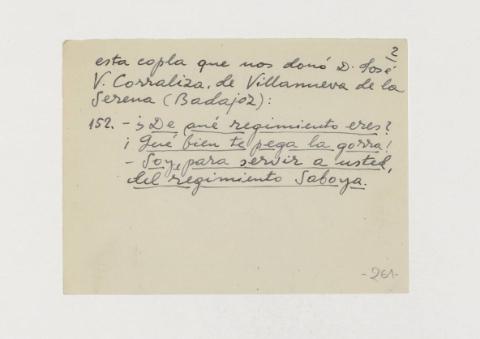 2
esta copla que nos donó D. José
V. Corraliza, de Villanueva de la
Serena (Badajoz):
152. - ¿De qué regimiento eres?
¡Qué bien te pega la gorra!
- Soy, para servir a usted,
del regimiento Saboya.
-261-